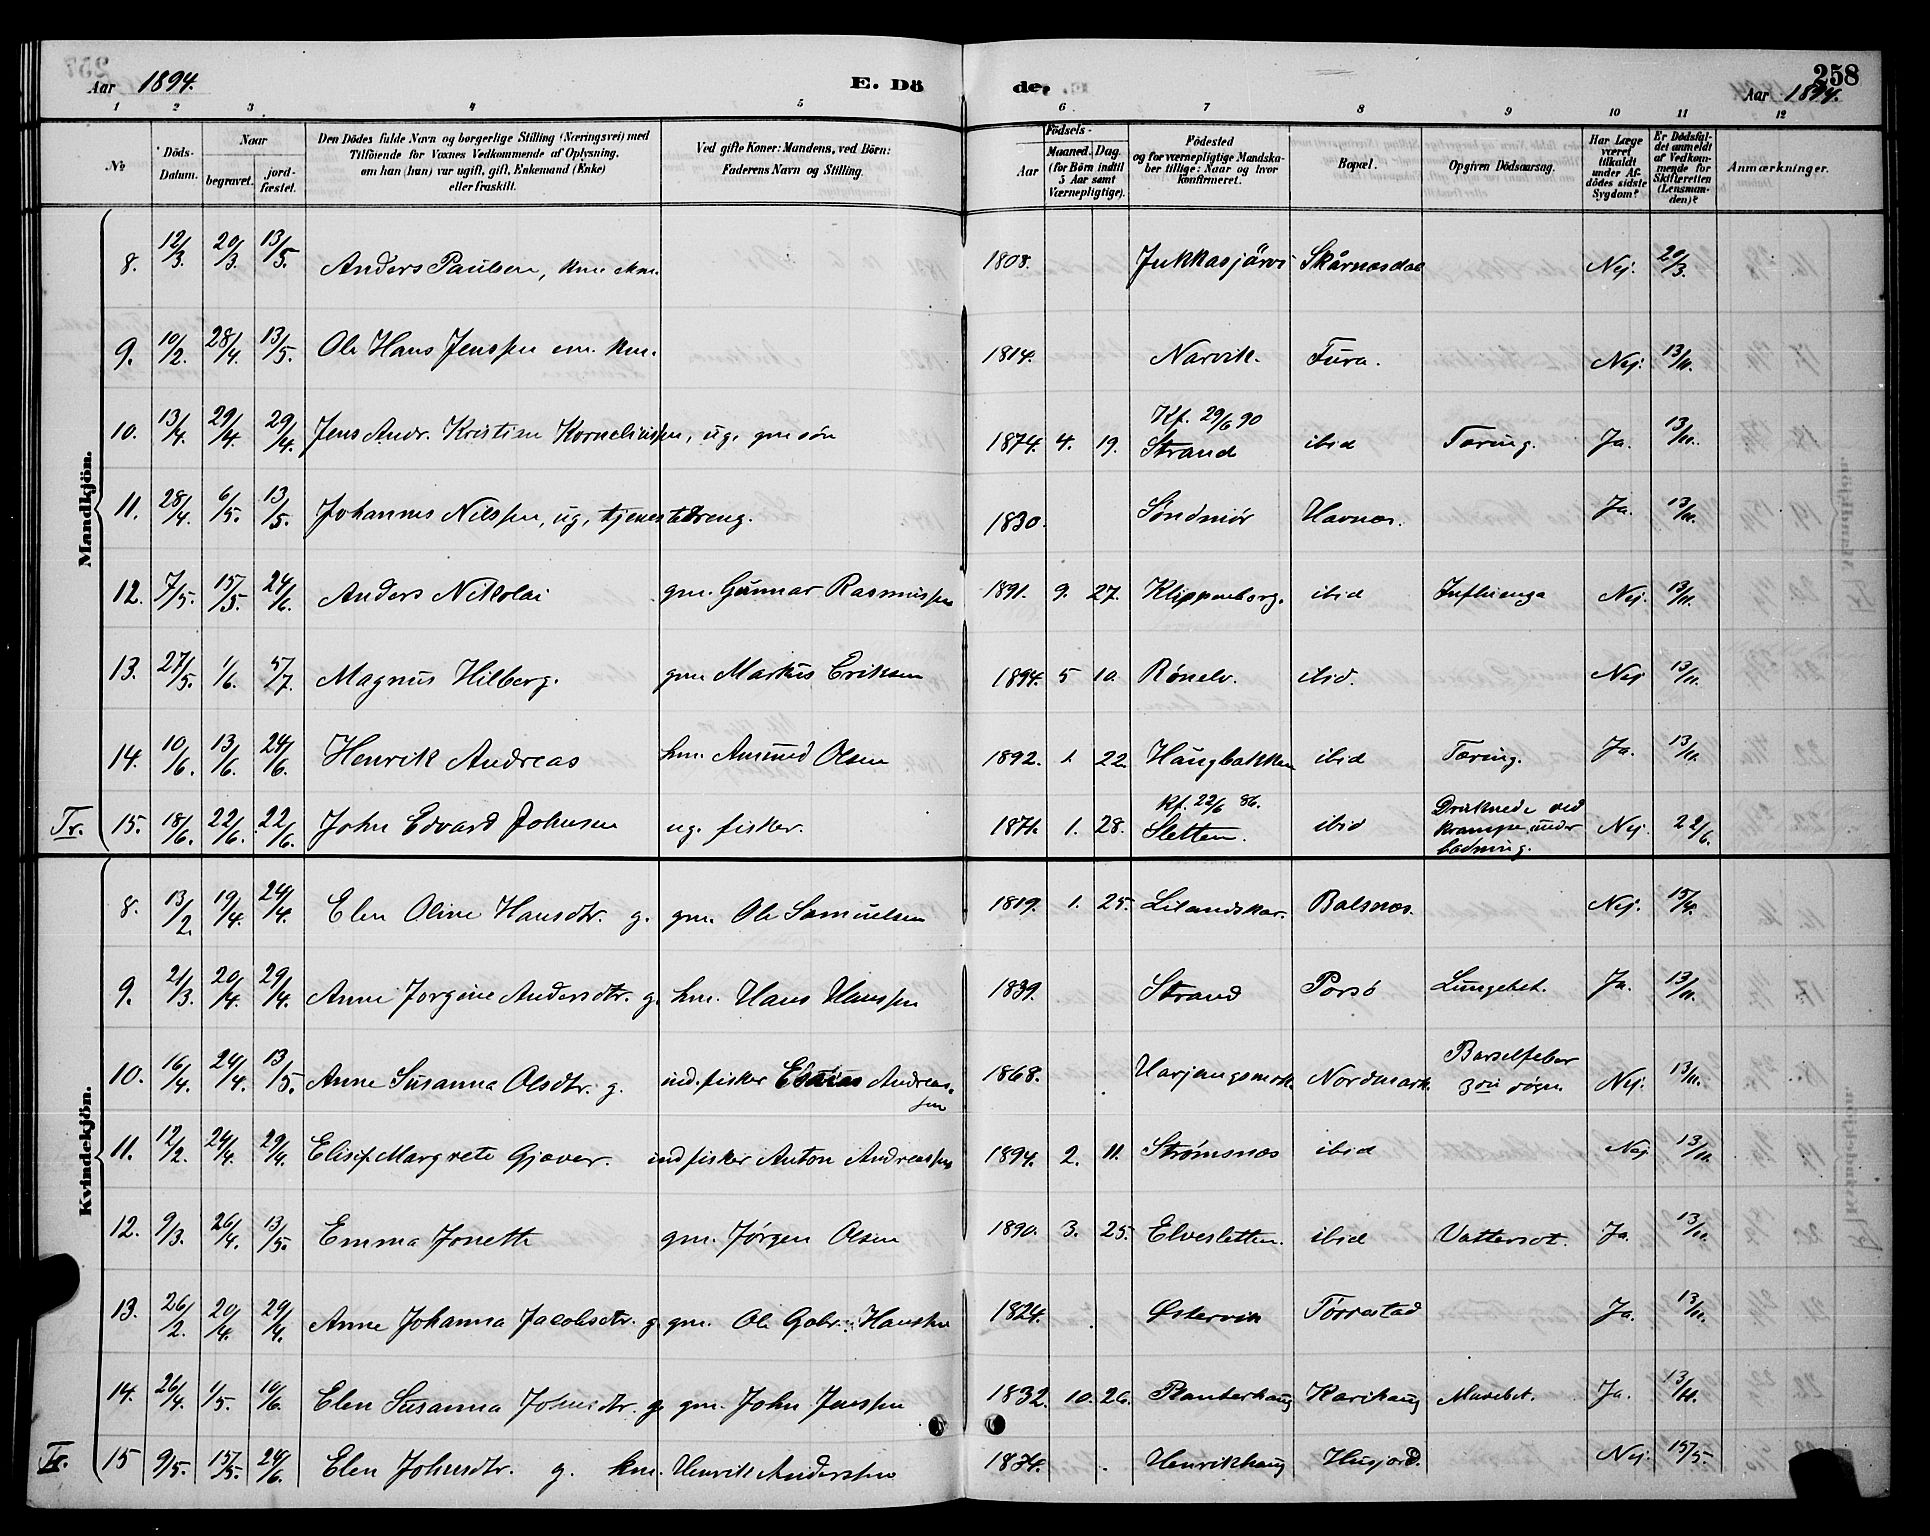 Aar 1894. E. Dö de. 258
Aar 1894.
1 2 3 4 5 6 7 8 9 10 11 12
No
Döds-Datum.
Naar
begravet.
jord-fæstet.
Den Dödes fulde Navn og borgerlige Stilling (Næringsvei) med
Tilföiende for Voxnes Vedkommende af Oplysning,
om han (hun) var ugift, gift, Enkemand (Enke)
eller fraskilt.
Ved gifte Koner: Mandens, ved Börn:
Faderens Navn og Stilling.
Födsels-
Aar
Maaned. Dag.
(for Börn indtil
5 Aar samt
Værnepligtige).
Födested
og for værnepligtige Mandska-
ber tillige: Naar og hvor
konfirmeret.
Bopæl.
Opgiven Dödsaarsag.
Har Læge
været
tilkaldt
under Af-
dödes sidste
Sygdom?
Er Dödsfal-
det anmeldt
af Vedkom-
mende for
Skifteretten
(Lensman-
den)?
Anmærkninger.
Mandkjön.
8. 12/3 20/3 13/5. Anders Paulsen, 1808. Jukkasjärvi Skårnesdal Nej. 20/3.
9. 10/2. 28/4. 13/5. Ole Hans Jenssen em. km. 1814. Narvik. Fura. Nej. 13/11.
10. 13/4. 29/4. 29/4. Jens Andr. Kristian Korneliussen, ug. gm søn 1874. 4. 19. Kf. 29/6 90 Strand ibid Tæring. Ja. 13/11.
11. 28/4. 6/5. 13/5. Johannes Nilssen, ug, tjenestedreng. 1830. Søndmør Havnæs. Ja. 13/11.
12. 7/5. 15/5. 24/6. Anders Nikolai gm. Gunnar Rasmussen 1891. 9. 27. Klippenborg. ibid Influenza Nej. 13/11.
13. 27/5. 1/6. 5/7. Magnus Hilberg. gm Markus Eriksen 1894. 5 10. Rønelv. ibid. Nej 13/11.
14. 10/6. 13/6. 24/6. Henrik Andreas hm. Amund Olsen 1892. 1. 22. Haugbakken ibid Tæring. Ja. 13/11.
Tr. 15. 18/6. 22/6. 22/6. John Edvard Johnsen ug. fisker. 1871. 1. 28. Kf. 22/6 86. Sletten. ibid Druknede ved krampe under badning. Nej. 22/6.
Kvindekjön.
8. 13/2. 19/4. 24/4. Elen Oline Hansdtr. g. gm. Ole Samuelsen 1819. 1. 25. Lilandskar. Balsnæs. Nej. 15/4.
9. 21/3. 20/4. 29/4. Anne Jorgine Andersdtr. g. hm. Hans Hanssen 1839. Strand Porsö Lungebet. Ja. 13/11.
10. 16/4. 24/4. 13/5. Anne Susanna Olsdtr. g. ind. fisker Esaias Andreassen 1868. Harjangsmrk. Nordmark. Barselfeber 3die døgn. Nej. 13/11.
11. 12/2. 24/4. 29/4. Elisif Margrete Gjæver. ind fisker Anton Andreassen 1894. 2. 11. Strømsnæs ibid Nej 13/11.
12. 9/3. 26/4. 13/5. Emma Jonette gm. Jørgen Olsen 1890. 3. 25. Elvesletten. ibid Vattersot. Ja. 13/11.
13. 26/2. 20/4. 29/4. Anne Johanna Jacobsdtr. g. gm. Ole Gabr. Hanssen 1824. Østervik Törrestad Ja. 13/11.
14. 26/4. 1/5. 10/6. Elen Susanna Johnsdtr. g. gm. John Jenssen 1832. 10. 26. Planterhaug Karihaug Mavebet. Ja. 13/11.
Tr. 15 9/5. 15/5. 24/6. Elen Johnsdtr. g. hm. Henrik Anderssen 1834. Henrikhaug Husjord. Nej. 15/5.